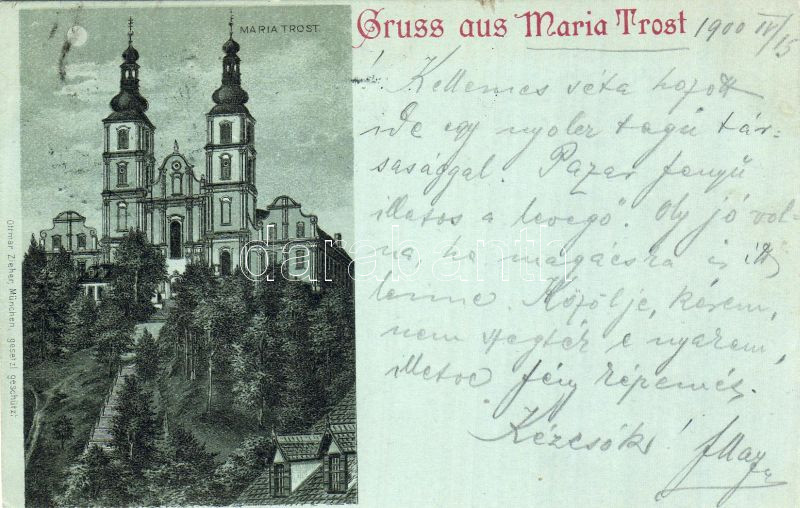 MARIA TROST.
Gruss aus Maria Trost
1900 IV/15
Kellemes séta hozott
ide egy nyolcz tagú tár-
sasággal. Pazar fenyű
illatos a levegő. Oly jó vol-
na ha magácska is itt
lenne. Közölje, kérem,
nem
e nyáron,
illetve
Kézcsók!
Ottmar Zieher, München, gesetzl. geschützt.
darabanth